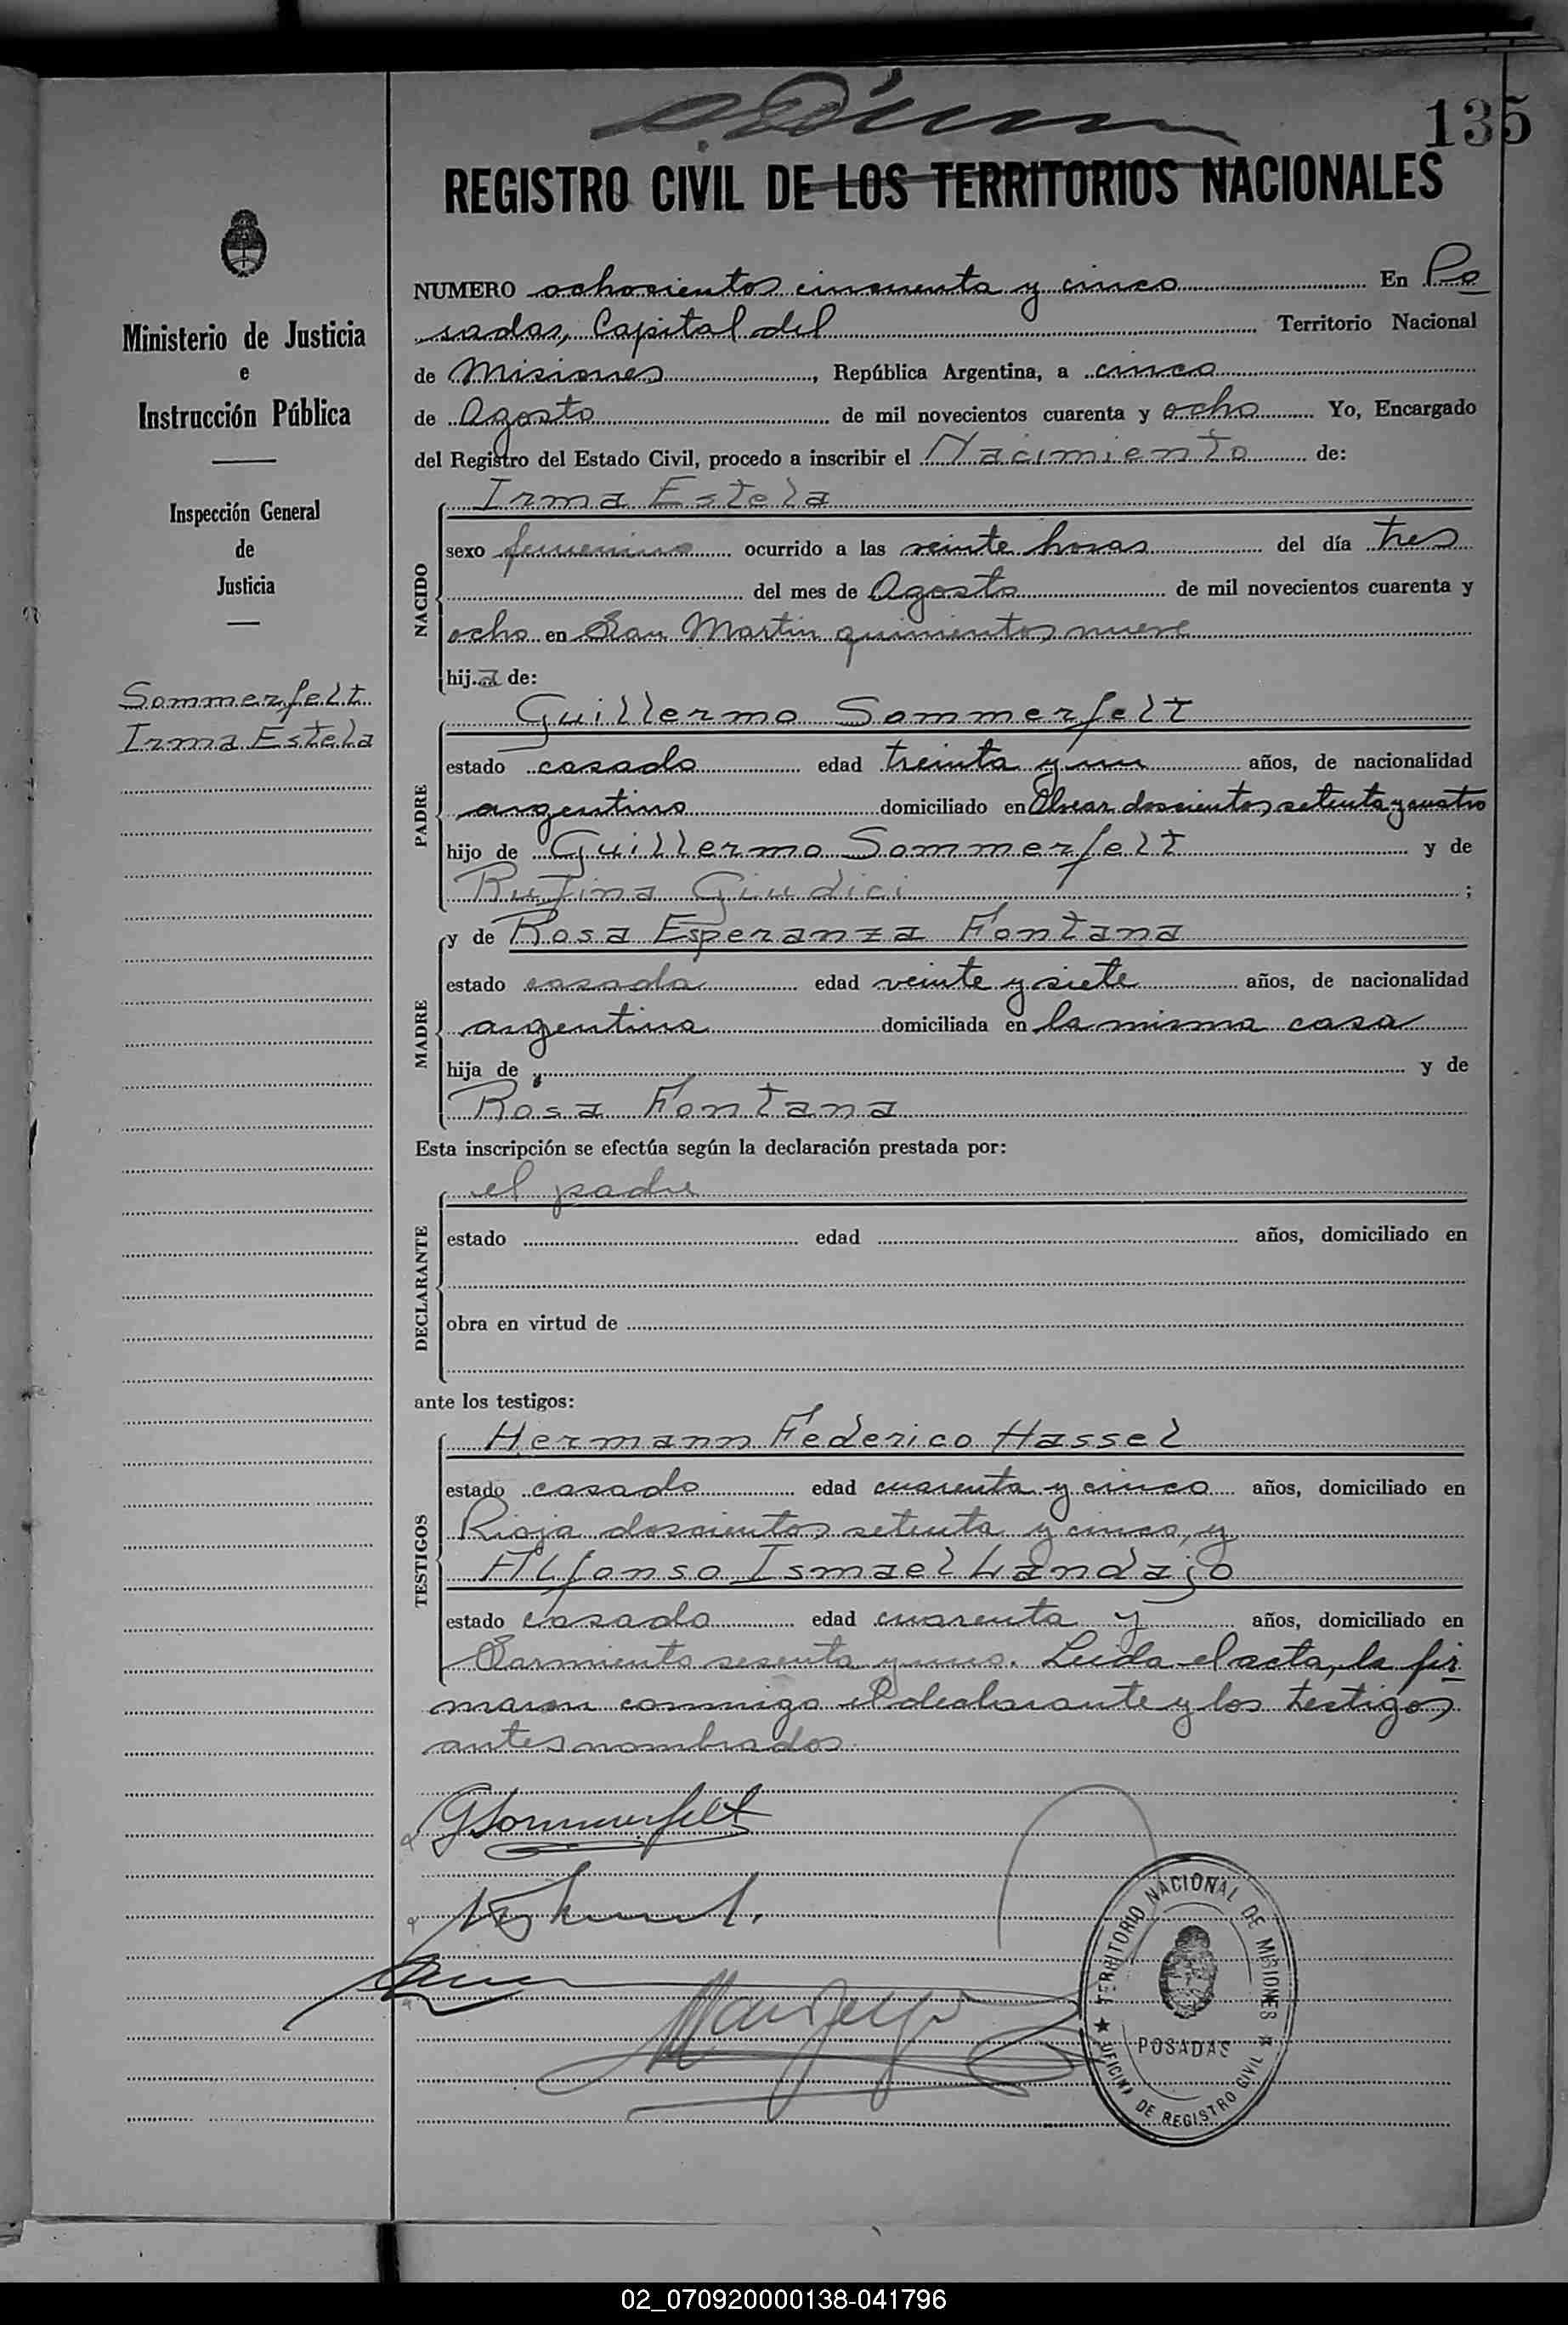 135
REGISTRO CIVIL DE LOS TERRITORIOS NACIONALES
Ministerio de Justicia
e
Instrucción Pública
Inspección General
de
Justicia
Sommerfelt
Irma Estela
NUMERO ochocientos cincuenta y cinco En Po
sadas, Capital del Territorio Nacional
de Misiones, República Argentina, a cinco
de Agosto de mil novecientos cuarenta y ocho Yo, Encargado
del Registro del Estado Civil, procedo a inscribir el Nacimiento de:
NACIDO
Irma Estela
sexo femenino ocurrido a las veinte horas del día tres
del mes de Agosto de mil novecientos cuarenta y
ocho en San Martin quinientos nueve
hija de:
PADRE
Guillermo Sommerfelt
estado casado edad treinta y un años, de nacionalidad
argentino domiciliado en Alvear doscientos setenta y cuatro
hijo de Guillermo Sommerfelt y de
Rufina Giudici ;
MADRE
y de Rosa Esperanza Fontana
estado casada edad veinte y siete años, de nacionalidad
argentina domiciliada en la misma casa
hija de y de
Rosa Fontana
Esta inscripción se efectúa según la declaración prestada por:
DECLARANTE
el padre
estado edad años, domiciliado en
obra en virtud de
ante los testigos:
TESTIGOS
Hermann Federico Hassel
estado casado edad cuarenta y cinco años, domiciliado en
Rioja doscientos setenta y cinco, y
Alfonso Ismael Landajo
estado casado edad cuarenta y años, domiciliado en
Sarmiento sesenta y uno. Leída el acta, la fir
maron conmigo el declarante y los testigos
antes nombrados
GSommerfelt
TERRITORIO NACIONAL DE MISIONES
POSADAS
OFICINA DE REGISTRO CIVIL
02_070920000138-041796